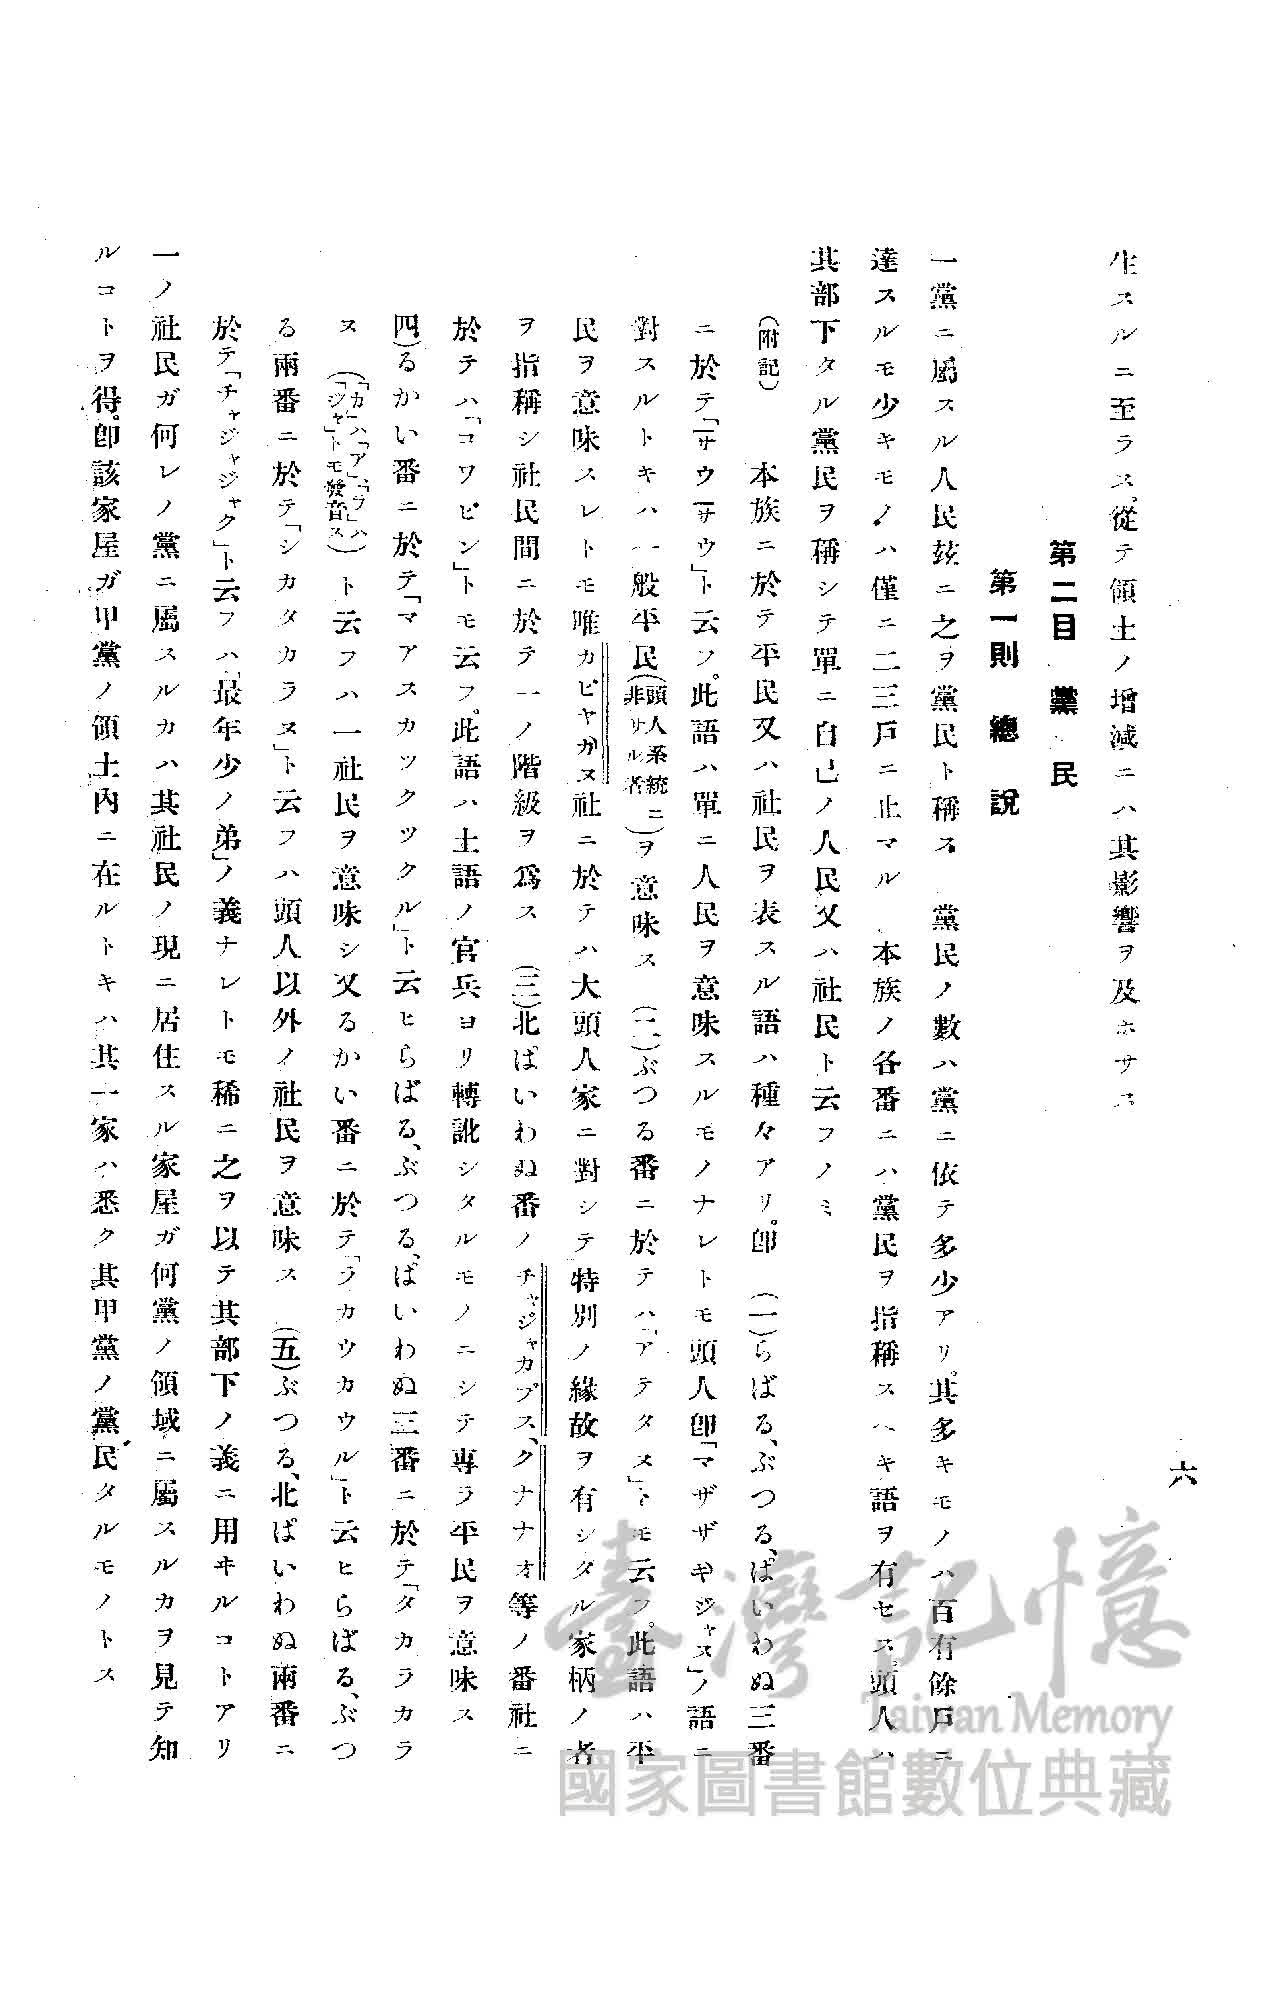 六
生スルニ至ラス、從テ領土ノ增減ニハ其影響ヲ及ホサス
第二目 黨民
第一則 總說
一黨ニ屬スル人民玆ニ之ヲ黨民ト稱ス 黨民ノ數ハ黨ニ依テ多少アリ。其多キモノハ百有餘戶ニ
達スルモ少キモノハ僅ニ二三戶ニ止マル 本族ノ各番ニハ黨民ヲ指稱スヘキ語ヲ有セス、頭人ハ
其部下タル黨民ヲ稱シテ單ニ自己ノ人民又ハ社民ト云フノミ
(附記) 本族ニ於テ平民又ハ社民ヲ表スル語ハ種々アリ。卽 (一)らばる、ぶつる、ぱいわぬ三番
ニ於テ「サウサウ」ト云フ。此語ハ單ニ人民ヲ意味スルモノナレトモ頭人卽「マザザギジャス」ノ語ニ
對スルトキハ一般平民(頭人系統ニ非サル者)ヲ意味ス (二)ぶつる番ニ於テハ「アテタス」トモ云フ。此語ハ平
民ヲ意味スレトモ唯カピヤガヌ社ニ於テハ大頭人家ニ對シテ特別ノ緣故ヲ有シタル家柄ノ者
ヲ指稱シ社民間ニ於テ一ノ階級ヲ爲ス (三)北ぱいわぬ番ノチャジャカブス、クナナオ等ノ番社ニ
於テハ「コワピン」トモ云フ。此語ハ土語ノ官兵ヨリ轉訛シタルモノニシテ專ラ平民ヲ意味ス
四)るかい番ニ於テ「マアスカツックツックル」ト云ヒらばる、ぶつる、ぱいわぬ三番ニ於テ「タカラカラ
ス(「カ」ハ「ア」、「ラ」ハ「ジャ」トモ發音ス)ト云フハ一社民ヲ意味シ又るかい番ニ於テ「ラカウカウル」ト云ヒらばる、ぶつ
る兩番ニ於テ「シカタカラヌ」ト云フハ頭人以外ノ社民ヲ意味ス (五)ぶつる、北ぱいわぬ兩番ニ
於テ「チャジャジャク」ト云フハ「最年少ノ弟」ノ義ナレトモ稀ニ之ヲ以テ其部下ノ義ニ用ヰルコトアリ
一ノ社民ガ何レノ黨ニ屬スルカハ其社民ノ現ニ居住スル家屋ガ何黨ノ領域ニ屬スルカヲ見テ知
ルコトヲ得。卽該家屋ガ甲黨ノ領土內ニ在ルトキハ其一家ハ悉ク其甲黨ノ黨民タルモノトス
臺灣記憶
Taiwan Memory
國家圖書館數位典藏